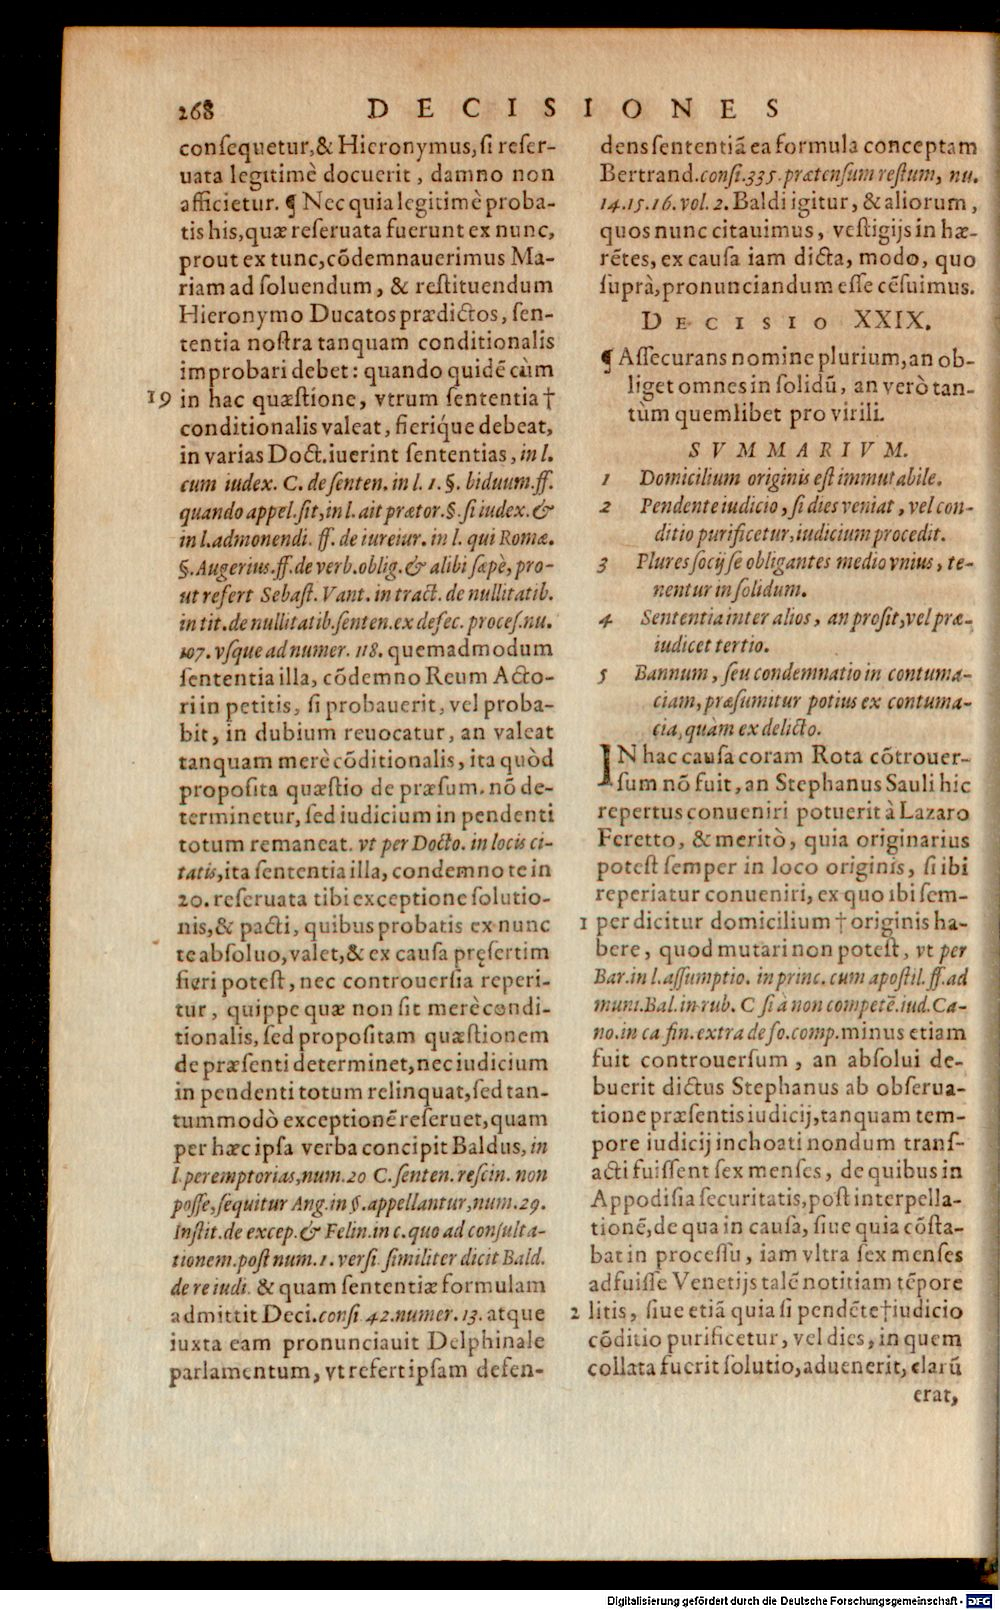 268 DECISIONES
conſequetur,& Hieronymus, ſi reſer-
uata legitimè docuerit, damno non
afficietur. ¶ Nec quia legitimè proba-
tis his, quæ reſeruata fuerunt ex nunc,
prout ex tunc, cõdemnauerimus Ma-
riam ad ſoluendum, & reſtituendum
Hieronymo Ducatos prædictos, ſen-
tentia noſtra tanquam conditionalis
improbari debet: quando quidẽ cùm
19 in hac quæſtione, vtrum ſententia †
conditionalis valeat, fieríque debeat,
in varias Doct. iuerint ſententias, in l.
cum iudex. C. de ſenten. in l. 1. §. biduum. ff.
quando appel. ſit, in l. ait prætor. §. ſi iudex. &
in l. admonendi. ff. de iureiur. in l. qui Romæ.
§. Augerius. ff. de verb. oblig. & alibi ſæpè, pro-
ut refert Sebaſt. Vant. in tract. de nullitatib.
in tit. de nullitatib. ſenten. ex defec. proceſ. nu.
107. vſque ad numer. 118. quemadmodum
ſententia illa, cõdemno Reum Acto-
ri in petitis, ſi probauerit, vel proba-
bit, in dubium reuocatur, an valeat
tanquam merè cõditionalis, ita quòd
propoſita quæſtio de præſum. nõ de-
terminetur, ſed iudicium in pendenti
totum remaneat. vt per Docto. in locis ci-
tatis, ita ſententia illa, condemno te in
20. reſeruata tibi exceptione ſolutio-
nis,& pacti, quibus probatis ex nunc
te abſoluo, valet,& ex cauſa pręſertim
fieri poteſt, nec controuerſia reperi-
tur, quippe quæ non ſit merè condi-
tionalis, ſed propoſitam quæſtionem
de præſenti determinet, nec iudicium
in pendenti totum relinquat, ſed tan-
tummodò exceptionẽ reſeruet, quam
per hæc ipſa verba concipit Baldus, in
l. peremptorias, num. 20 C. ſenten. reſcin. non
poſſe, ſequitur Ang. in §. appellantur, num. 29.
Inſtit. de excep. & Felin. in c. quo ad conſulta-
tionem. poſt num. 1. verſi. ſimiliter dicit Bald.
de re iudi. & quam ſententiæ formulam
admittit Deci. conſi 42. numer. 13. atque
iuxta eam pronunciauit Delphinale
parlamentum, vt refert ipſam defen-
dens ſententiã ea formula conceptam
Bertrand. conſi. 335. prætenſum reſtum, nu.
14. 15. 16. vol. 2. Baldi igitur, & aliorum,
quos nunc citauimus, veſtigijs in hæ-
rẽtes, ex cauſa iam dicta, modo, quo
ſuprà, pronunciandum eſſe cẽſuimus.
DECISIO XXIX.
¶ Aſſecurans nomine plurium, an ob-
liget omnes in ſolidũ, an verò tan-
tùm quemlibet pro virili.
SVMMARIVM.
1 Domicilium originis eſt immutabile.
2 Pendente iudicio, ſi dies veniat, vel con-
ditio purificetur, iudicium procedit.
3 Plures ſocij ſe obligantes medio vnius, te-
nentur in ſolidum.
4 Sententia inter alios, an proſit, vel præ-
iudicet tertio.
5 Bannum, ſeu condemnatio in contuma-
ciam, præſumitur potius ex contuma-
cia, quàm ex delicto.
IN hac cauſa coram Rota cõtrouer-
ſum nõ fuit, an Stephanus Sauli hic
repertus conueniri potuerit à Lazaro
Feretto, & meritò, quia originarius
poteſt ſemper in loco originis, ſi ibi
reperiatur conueniri, ex quo ibi ſem-
1 per dicitur domicilium † originis ha-
bere, quod mutari non poteſt, vt per
Bar. in l. aſſumptio. in princ. cum apoſtil. ff. ad
muni. Bal. in rub. C ſi à non competẽ. iud. Ca-
no. in ca fin. extra de fo. comp. minus etiam
fuit controuerſum, an abſolui de-
buerit dictus Stephanus ab obſerua-
tione præſentis iudicij, tanquam tem-
pore iudicij inchoati nondum tranſ-
acti fuiſſent ſex menſes, de quibus in
Appodiſia ſecuritatis, poſt interpella-
tionẽ, de qua in cauſa, ſiue quia cõſta-
bat in proceſſu, iam vltra ſex menſes
adfuiſſe Venetijs talẽ notitiam tẽpore
2 litis, ſiue etiã quia ſi pendẽte † iudicio
cõditio purificetur, vel dies, in quem
collata fuerit ſolutio, aduenerit, clarũ
erat,
Digitalisierung gefördert durch die Deutsche Forschungsgemeinschaft - DFG